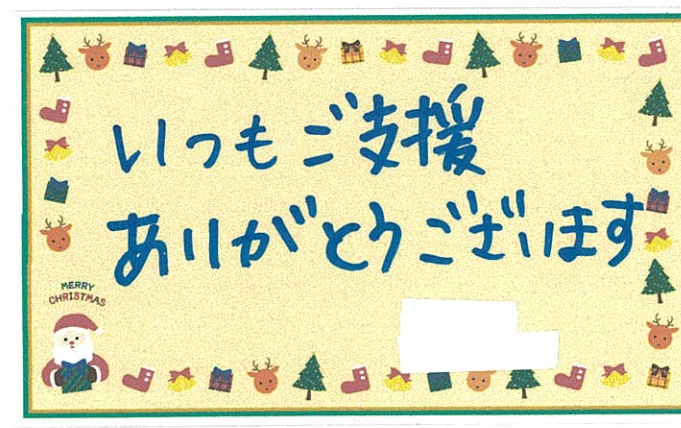 いつもご支援
ありがとうございます
MERRY
CHRISTMAS